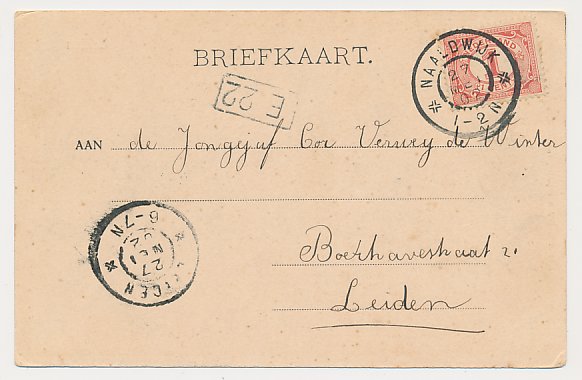 BRIEFKAART.
NAALDWIJK
27
1-2 N
F 22
AAN de Jongejuf Cor Verwey de Winter
Boerhavestraat 2.
Leiden
6-7N
27